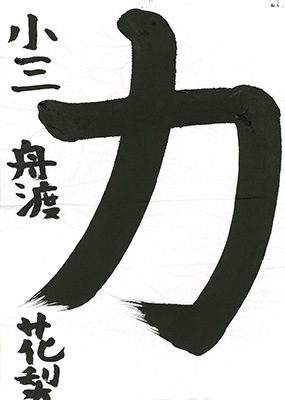 力
小三 舟渡 花梨